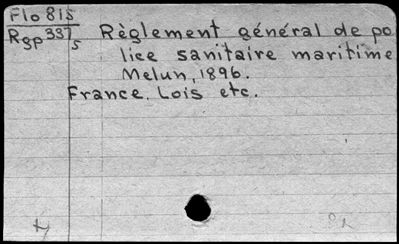 Flo 815
Rgp 337 5 Règlement général de po
lice sanitaire maritime
Melun, 1896.
France. Lois etc.